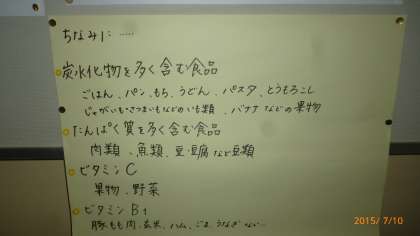 ちなみに……
炭水化物を多く含む食品
ごはん、パン、もち、うどん、パスタ、とうもろこし
じゃがいも・さつまいもなどのいも類、バナナなどの果物
たんぱく質を多く含む食品
肉類、魚類、豆・豆腐など豆類
ビタミンC
果物、野菜
ビタミンB1
豚もも肉、玄米、ハム、ごま、うなぎ
2015/ 7/10